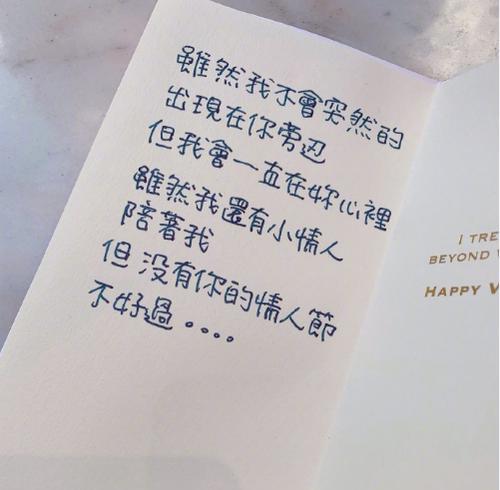 雖然我不會突然的
出現在你旁边
但我會一直在妳心裡
雖然我還有小情人
陪著我
但没有你的情人節
不好過....
I TRE
BEYOND
HAPPY V